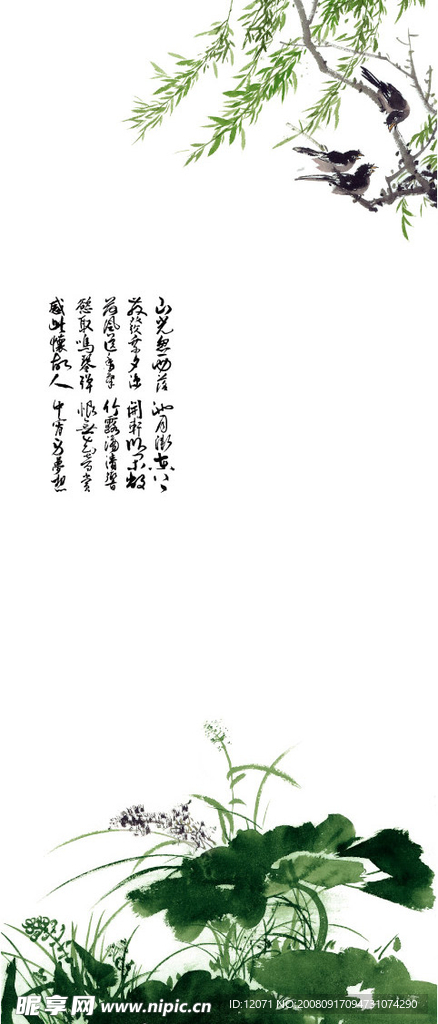 山光忽西落 池月渐东上
散发乘夕凉 开轩卧闲敞
荷风送香气 竹露滴清响
欲取鸣琴弹 恨无知音赏
感此怀故人 中宵劳梦想
昵享网 www.nipic.cn
ID:12071 NO:20080917094731074290